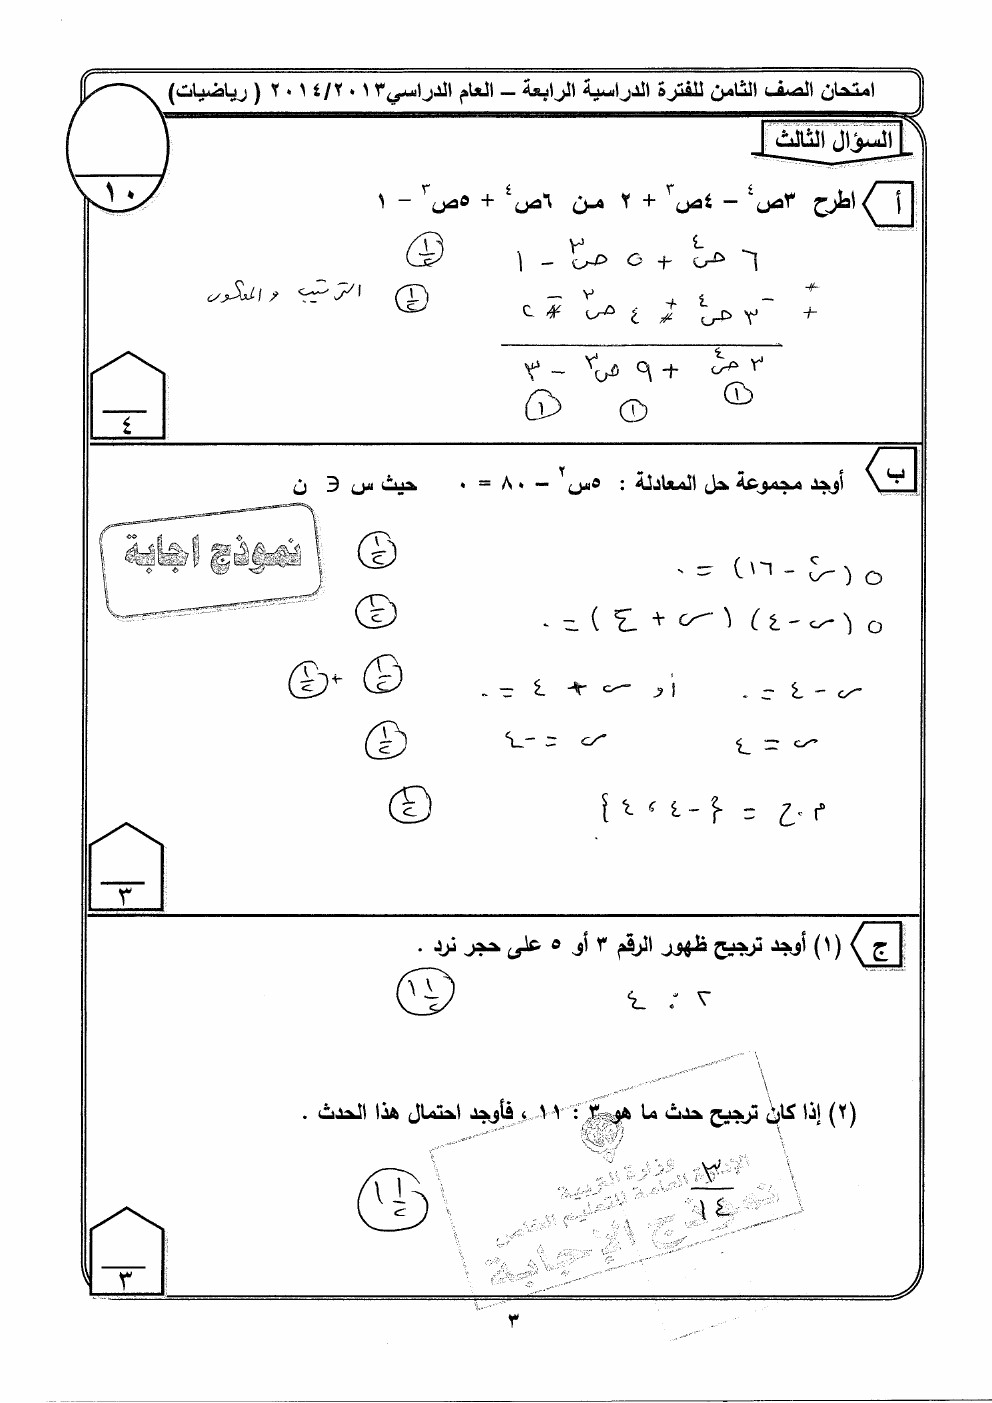 امتحان الصف الثامن للفترة الدراسية الرابعة – العام الدراسي ٢٠١٤/٢٠١٣ ( رياضيات)
١٠
السؤال الثالث
أ اطرح ٣ص⁴ – ٤ص³ + ٢ من ٦ص⁴ + ٥ص³ – ١
٦ص⁴ + ٥ص³ – ١ ½
الترتيب والمعكوس ½
٣ص⁴ + ٩ص³ – ٣
١ ١ ١
٤
ب أوجد مجموعة حل المعادلة : ٥س² – ٨٠ = ٠ حيث س ∋ ن
نموذج اجابة
٥(س² – ١٦) = ٠ ½
٥(س – ٤)(س + ٤) = ٠ ½
س – ٤ = ٠ أو س + ٤ = ٠ ½ + ½
س = ٤ س = –٤ ½
م.ح = {–٤ ، ٤} ½
٣
ج (١) أوجد ترجيح ظهور الرقم ٣ أو ٥ على حجر نرد .
٢ : ٤ ١½
(٢) إذا كان ترجيح حدث ما هو ٣ : ١١ ، فأوجد احتمال هذا الحدث .
٣/١٤ ١½
وزارة التربية
الإدارة العامة للتعليم الخاص
نموذج الإجابة
٣
٣